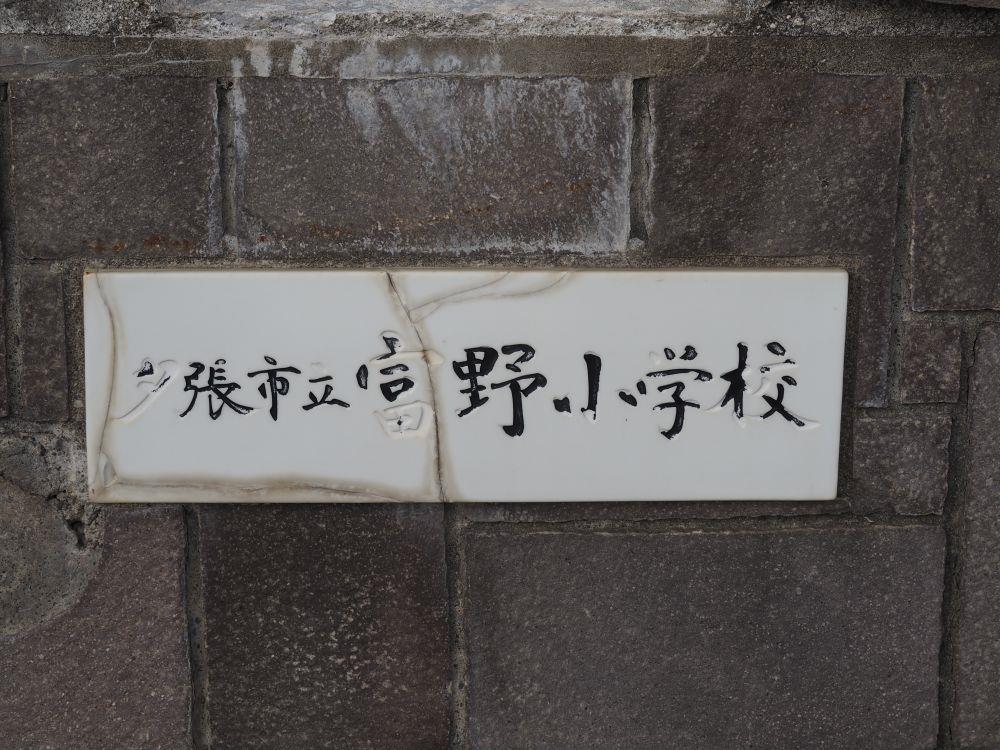 夕張市立富野小学校